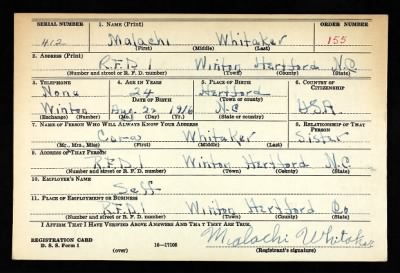 SERIAL NUMBER 1. NAME (Print) ORDER NUMBER
412 Malachi Whitaker 155
(First) (Middle) (Last)
2. ADDRESS (Print)
R.F.D 1 Winton Hertford N.C
(Number and street or R. F. D. number) (Town) (County) (State)
3. TELEPHONE 4. AGE IN YEARS 5. PLACE OF BIRTH 6. COUNTRY OF CITIZENSHIP
None 24 Hertford
DATE OF BIRTH (Town or county)
Winton 1916 N.C USA
(Exchange) (Number) (Mo.) (Day) (Yr.) (State or country)
7. NAME OF PERSON WHO WILL ALWAYS KNOW YOUR ADDRESS 8. RELATIONSHIP OF THAT PERSON
Whitaker Sister
(Mr., Mrs., Miss) (First) (Middle) (Last)
9. ADDRESS OF THAT PERSON
R.F.D 1 Winton Hertford N.C.
(Number and street or R. F. D. number) (Town) (County) (State)
10. EMPLOYER'S NAME
Self
11. PLACE OF EMPLOYMENT OR BUSINESS
R.F.D 1 Winton Hertford Co
(Number and street or R. F. D. number) (Town) (County) (State)
I AFFIRM THAT I HAVE VERIFIED ABOVE ANSWERS AND THAT THEY ARE TRUE.
REGISTRATION CARD
D. S. S. Form 1 16—17105 Malachi Whitaker
(over) (Registrant's signature)